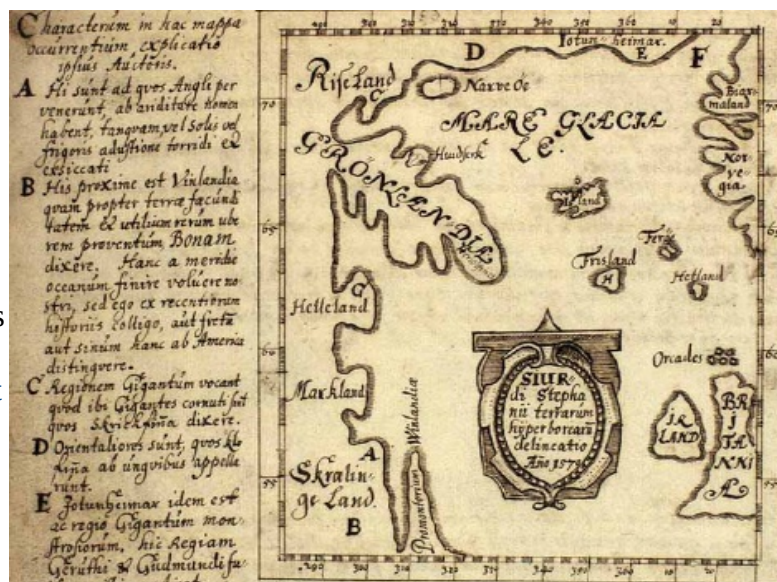 Characterum in hac mappa
occurrentium explicatio
ipsius Auctoris.
A Hi sunt ad quos Angli per
venerunt, ab ariditate nomen
habent, tanquam vel Solis vel
frigoris adustione torridi et
exsiccati
B His proxime est Vinlandia
quam propter terræ fæcundi
tatem & utilium rerum ube
rem proventum, Bonam
dixere. Hanc a meridie
oceanum finire voluere no
stri, sed ego ex recentiorum
historiis colligo, aut fretum
aut sinum hanc ab America
distinguere.
C Regionem Gigantum vocant
quod ibi Gigantes cornuti sint
quos Skrickfinna dixere.
D Orientaliores sunt, quos klo
fina ab unguibus appella
runt.
E Jotunheimar idem est
ac regio Gigantum mon
strosorum, hic Regiam
Geruthi & Gudmundi fu
290 300 310 320 330 340 350 360 10 20
D
Iotunheimar
E
F
Riseland
C
Narve Oe
Biarmaland
70
MARE GLACIA
LE
Huidserk
GRONLANDIA
Norvegia
65
Island
Ferö
Frisland
H
Hetland
Helleland
G
60
Orcades
Markland
SIUR
di Stepha
nii terrarum
hyperborearum
delineatio
Año 1570
IR
LAND
BRITANNIA
A
Skralin
ge Land
Promontorium Winlandiæ
55
B
290 300 310 320 330 340 350 360 10 20